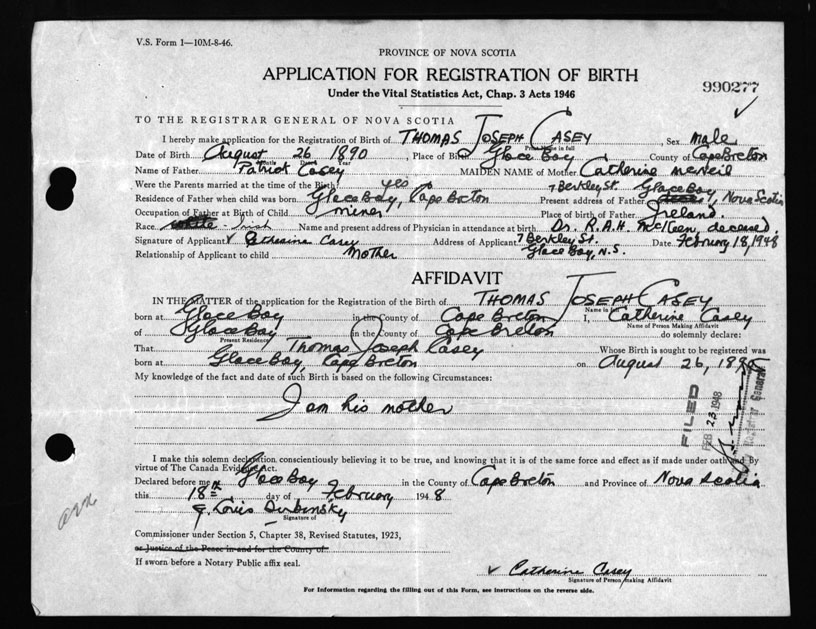 V.S. Form 1—10M-8-46.
PROVINCE OF NOVA SCOTIA
APPLICATION FOR REGISTRATION OF BIRTH
Under the Vital Statistics Act, Chap. 3 Acts 1946
990277
TO THE REGISTRAR GENERAL OF NOVA SCOTIA
I hereby make application for the Registration of Birth of THOMAS JOSEPH CASEY, Sex male
Print name in full
Date of Birth August 26 1890, Place of Birth Glace Bay County of Cape Breton
Month Date Year
Name of Father Patrick Casey MAIDEN NAME of Mother Catherine McNeil
Were the Parents married at the time of the Birth? yes 7 Berkley St. Glace Bay
Residence of Father when child was born Glace Bay, Cape Breton Present address of Father Nova Scotia
Occupation of Father at Birth of Child miner Place of birth of Father Ireland.
Race white Irish Name and present address of Physician in attendance at birth Dr. R.A.H. McKeen, deceased.
Signature of Applicant Catherine Casey Address of Applicant 7 Berkley St. Glace Bay, N.S. Date February 18, 1948
Relationship of Applicant to child Mother
AFFIDAVIT
IN THE MATTER of the application for the Registration of Birth of THOMAS JOSEPH CASEY
Name in full
born at Glace Bay in the County of Cape Breton I, Catherine Casey
Name of Person Making Affidavit
of Glace Bay in the County of Cape Breton do solemnly declare:
Present Residence
That Thomas Joseph Casey Whose Birth is sought to be registered was
born at Glace Bay, Cape Breton on August 26, 1890
My knowledge of the fact and date of such Birth is based on the following Circumstances:
I am his mother
FILED
FEB 23 1948
Registrar General
I make this solemn declaration conscientiously believing it to be true, and knowing that it is of the same force and effect as if made under oath and by
virtue of The Canada Evidence Act.
Declared before me at Glace Bay in the County of Cape Breton and Province of Nova Scotia
this 18th day of February 1948
Louis Dubinsky
Signature of
Commissioner under Section 5, Chapter 38, Revised Statutes, 1923,
or Justice of the Peace in and for the County of
If sworn before a Notary Public affix seal.
Catherine Casey
Signature of Person making Affidavit
For Information regarding the filling out of this Form, see instructions on the reverse side.